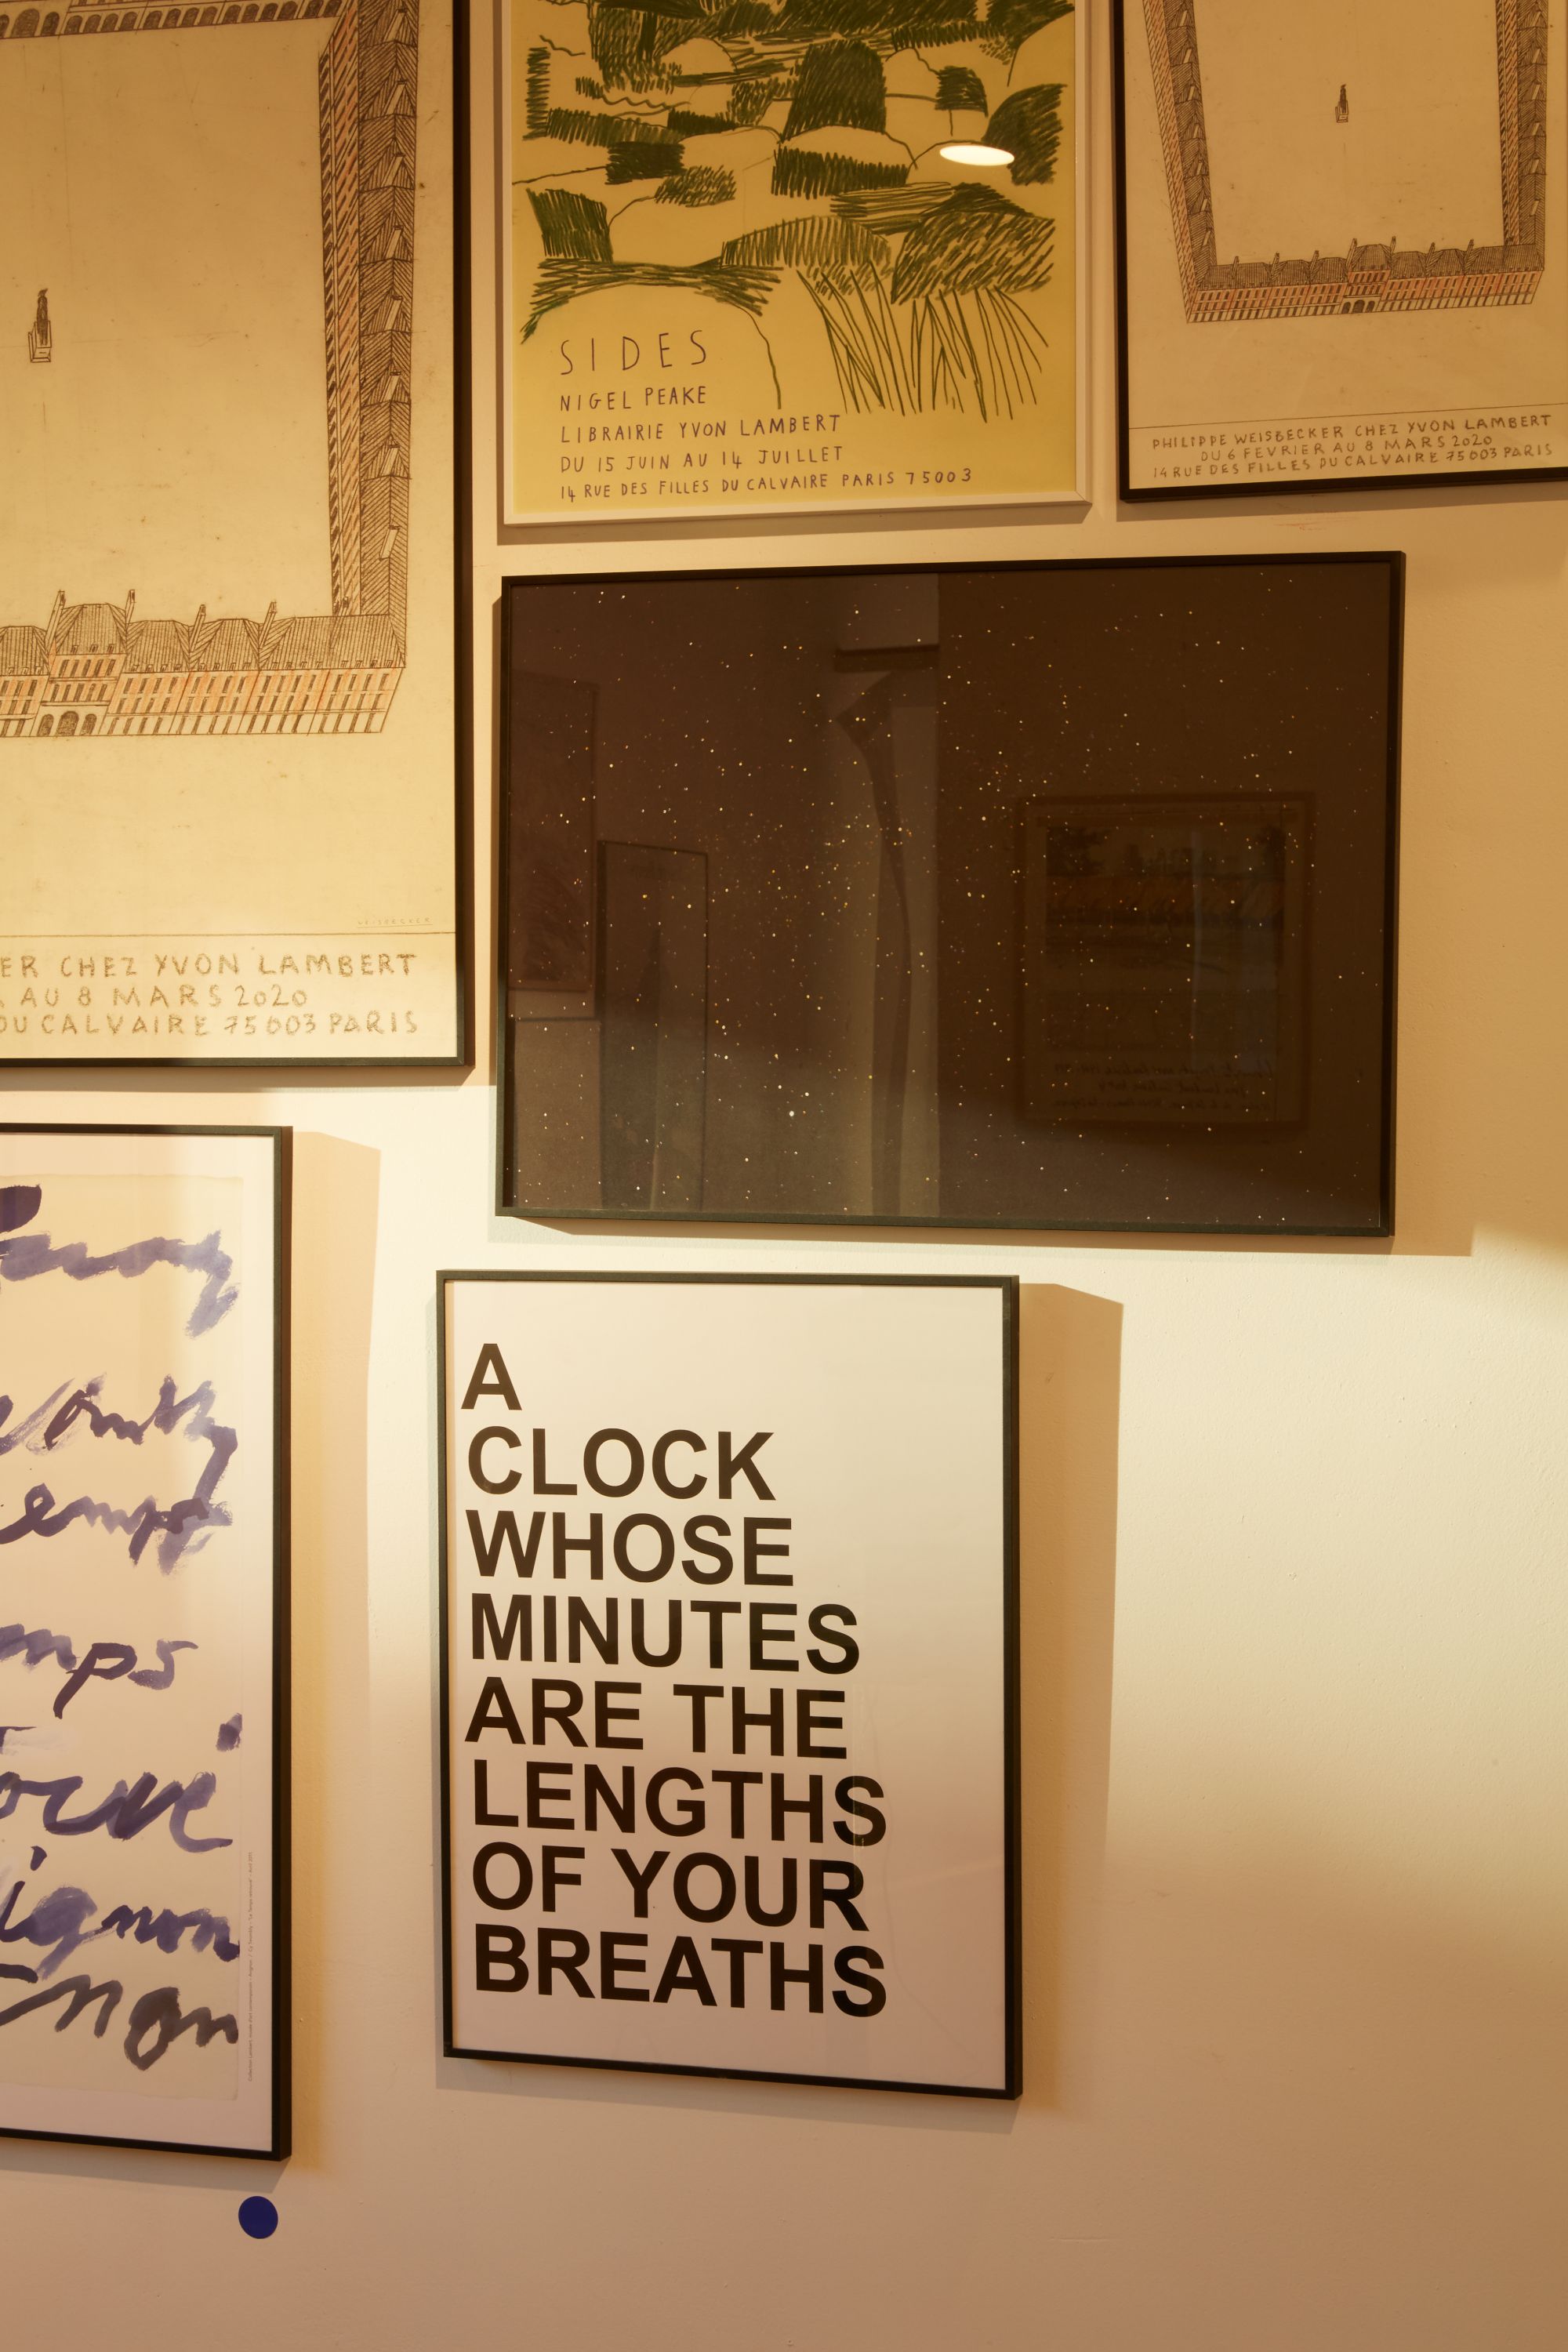 SIDES
NIGEL PEAKE
LIBRAIRIE YVON LAMBERT
DU 15 JUIN AU 14 JUILLET
14 RUE DES FILLES DU CALVAIRE PARIS 75003
PHILIPPE WEISBECKER CHEZ YVON LAMBERT
DU 6 FEVRIER AU 8 MARS 2020
14 RUE DES FILLES DU CALVAIRE 75003 PARIS
ER CHEZ YVON LAMBERT
AU 8 MARS 2020
DU CALVAIRE 75003 PARIS
emps
mps
ignon
gnon
A
CLOCK
WHOSE
MINUTES
ARE THE
LENGTHS
OF YOUR
BREATHS